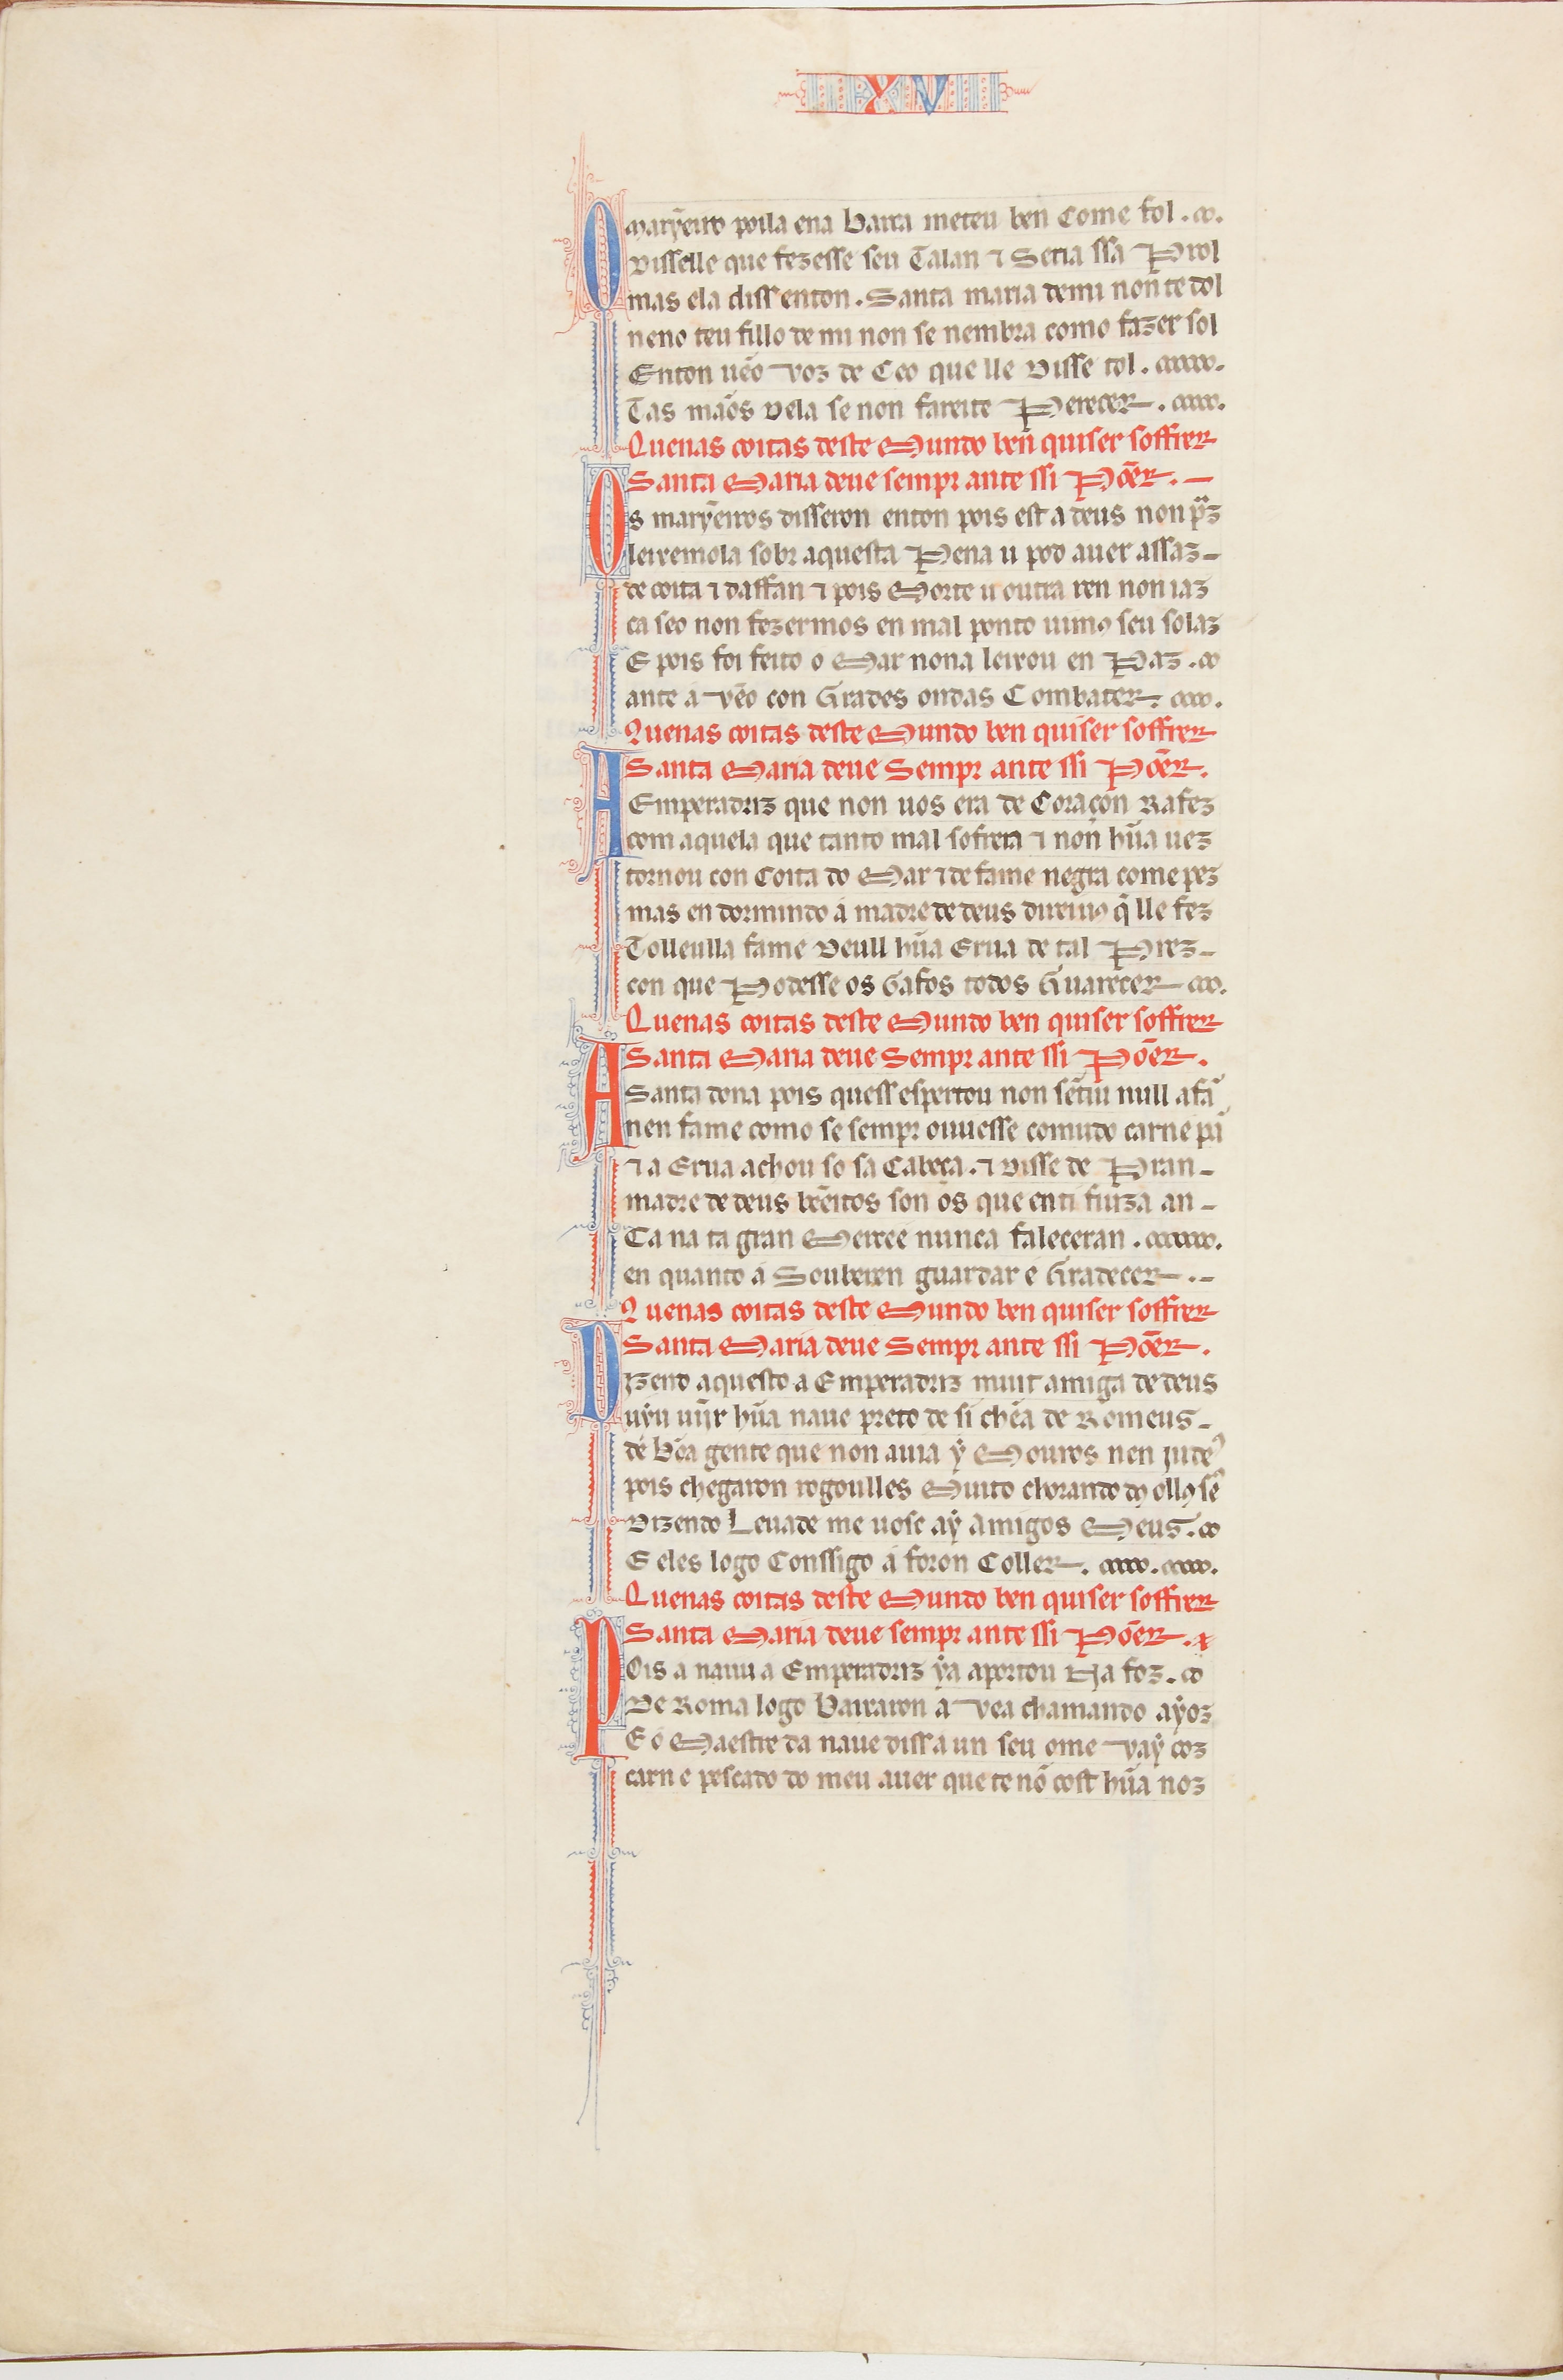 XV
O marȳeiro poila ena barca meteu ben come fol.
disselle que fezesse seu talan ⁊ seria ssa prol
mas ela diss enton. Santa maria de mi non te dol
neno teu fillo de mi non se nembra como fazer sol
Enton uẽo voz de ceo que lle disse tol.
Tas mãos dela se non fareite perecer.
Quenas coitas deste mundo ben quiser soffrer
Santa maria deue sempr ante ssi põer.
Os marỹeiros disseron enton pois est a deus non p̃z
leixemola sobr aquesta pena u pod auer assaz
de coita ⁊ daffan ⁊ pois morte u outra ren non iaz
ca seo non fezermos en mal ponto uimꝯ seu solaz
E pois foi feito o mar nona leixou en paz.
ante a vẽo con grades ondas combater.
Quenas coitas deste mundo ben quiser soffrer
Santa maria deue sempr ante ssi põer.
A Emperadriz que non uos era de coraçon rafez
com aquela que tanto mal sofrera ⁊ non hũa uez
tornou con coita do mar ⁊ de fame negra come pez
mas en dormindo a madre de deus direiuꝯ q̃ lle fez
Tolleulla fame deull hũa erua de tal prez
con que podesse os gafos todos guarecer
Quenas coitas deste mundo ben quiser soffrer
Santa maria deue sempr ante ssi põer.
A Santa dona pois quess espertou non sẽtiu null afã
nen fame como se sempr ouuesse comudo carne pã
⁊ a erua achou so sa cabeça. ⁊ disse de pran
madre de deus bẽeitos son os que en ti fiuza an
Ca na ta gran mercee nunca faleceran.
en quanto a souberen guardar e gradecer
Quenas coitas deste mundo ben quiser soffrer
Santa maria deue sempr ante ssi põer.
Dizend aquesto a Emperadriz muit amiga de deus
uỹu uĩjr hũa naue preto de si chẽa de romeus
de bõa gente que non auia ẏ mouros nen judeꝰ
pois chegaron rogoulles muito chorando dꝯ ollꝯ seꝰ
dizendo leuade me uosc aẏ amigos meus.
E eles logo conssigo a foron coller.
Quenas coitas deste mundo ben quiser soffrer
Santa maria deue sempr ante ssi põer.
Pois a naui a Emperadriz ẏa aportou na foz.
de roma logo baixaron a vea chamando aẏoz
E o maestre da naue diss a un seu ome vaẏ coz
carn e pescado do meu auer que te nõ cost hũa noz